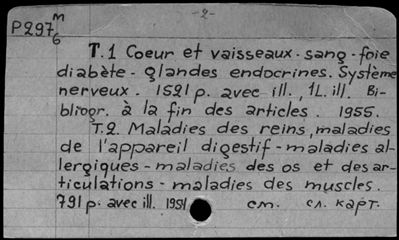 - 2 -
P297 м/б
T.1 Coeur et vaisseaux - sang - foie
diabète - glandes endocrines. Système
nerveux. 1521 p. avec ill., 1L. ill. Bi-
bliogr. à la fin des articles. 1955.
T.2. Maladies des reins, maladies
de l'appareil digestif - maladies al-
lergiques - maladies des os et des ar-
ticulations - maladies des muscles.
791 p. avec ill. 1954 см. сл. карт.